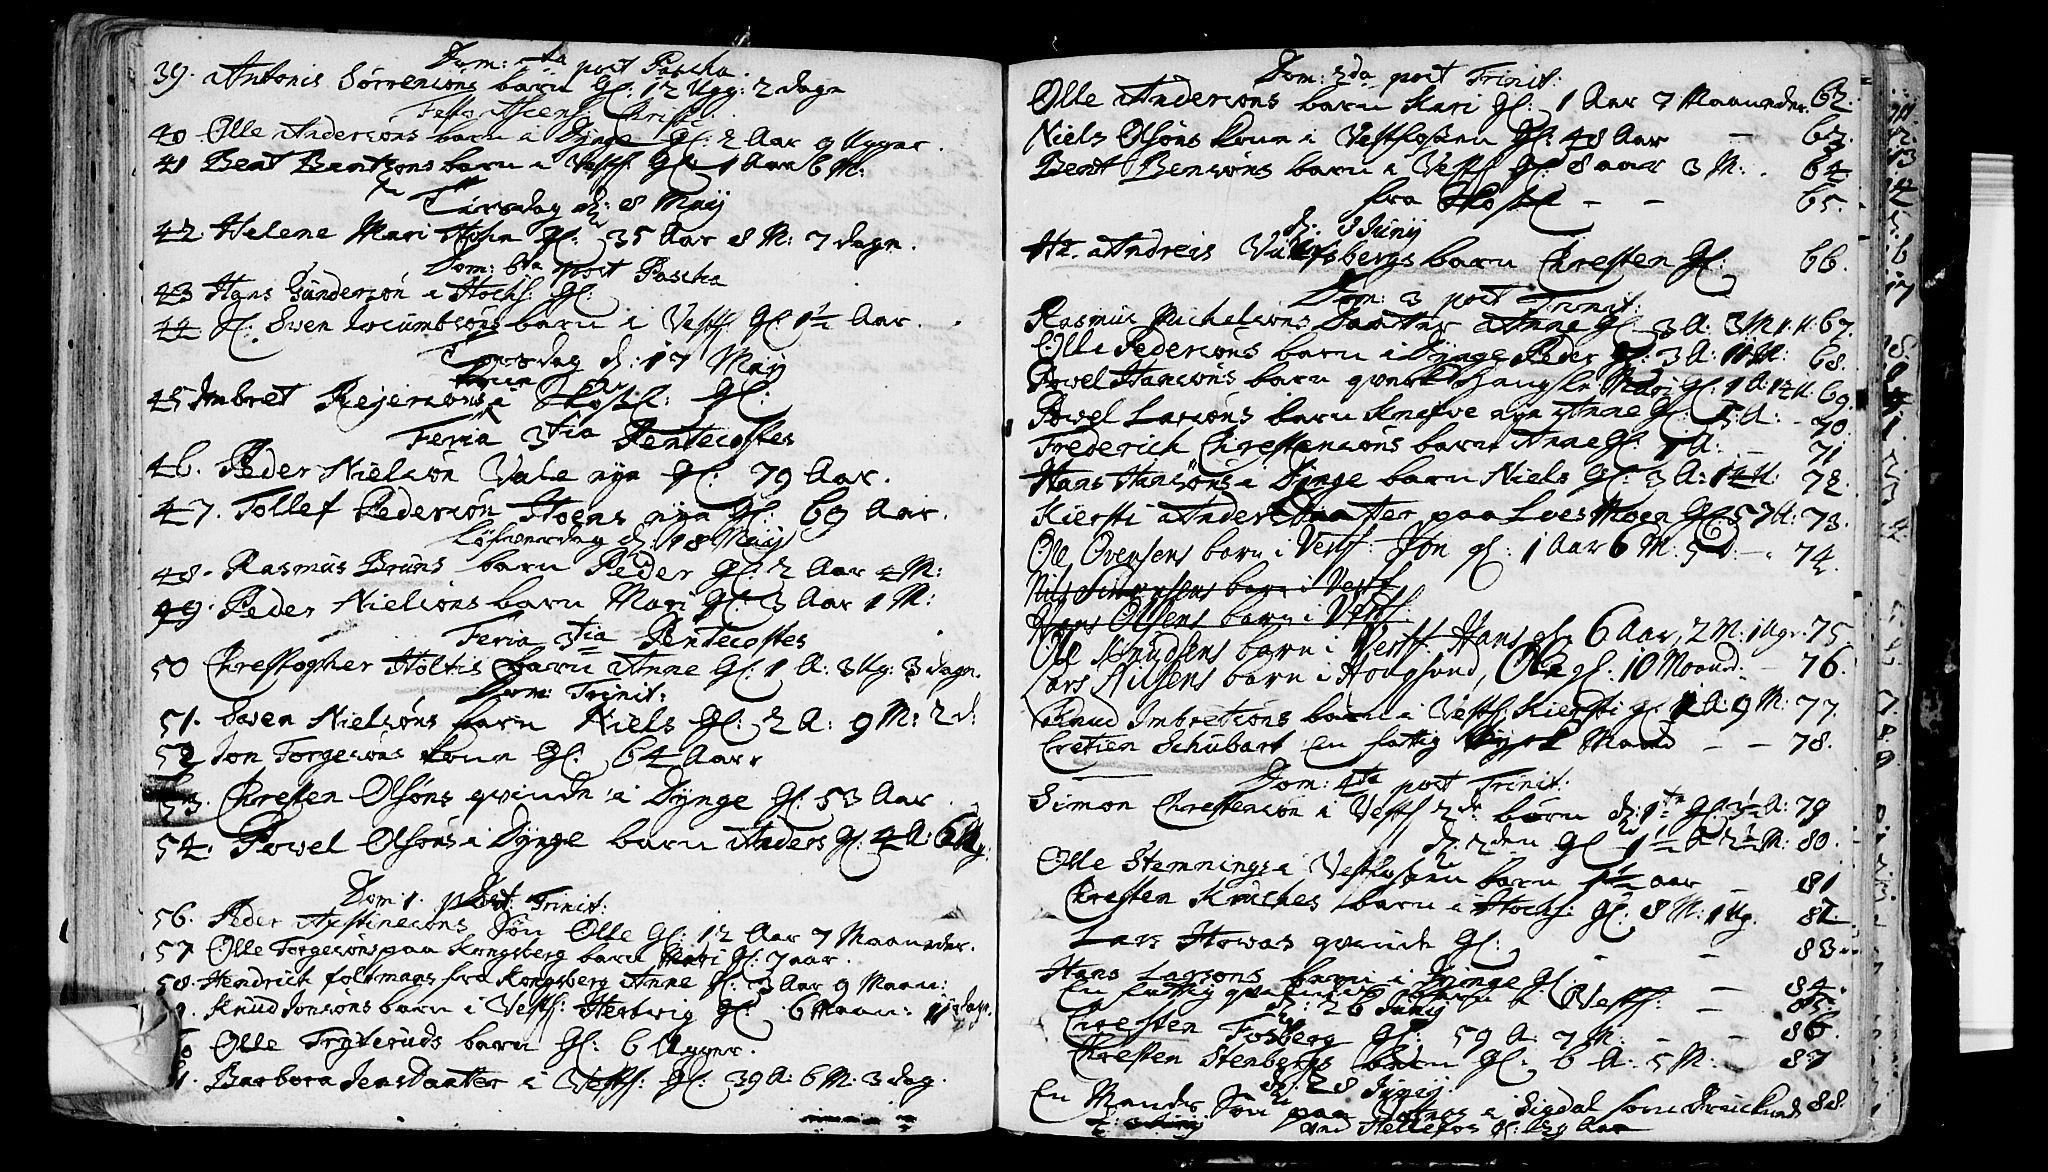 Dom: 5ta post Pascha.
39. Antonis Sörrensöns barn Gl: 12 Ugg: 2 dage
Festo Ascens: Christi.
40. Olle Andersöns barn i Dynge Gl: 2 Aar 9 Ugger.
41 Bent Bentsöns barn i Vestf: Gl: 1 Aar 6 M:
Tirsdag d: 8 Maij
42. Helene Mari Gl: 35 Aar 8 M: 7 dage.
Dom: 6ta post Pascha
43 Hans Gundersön i Hochs: Gl:
44 Sl. Swen barn i Vestf: Gl: 1½ Aar.
Torsdag d: 17 Maij
45 Imbret Rejersöns koene i Gl:
Feria 3tia Pentecostes
46. Peder Nielsön Vale nye Gl: 79 Aar.
47. Tollef Pedersön Hoens nye Gl: 69 Aar.
Löfverdag d: 18 Maij
48. Rasmus Bruns barn Peder Gl: 2 Aar 4 M:
49. Peder Nielsöns barn Mari Gl: 3 Aar 1 M:
Feria 3tia Pentecostes
50 Chrestopher Holtis barn Anne Gl: 1 A: 3 Ug: 3 dage.
Dom: Trinit:
51. Swen Nielsöns barn Niels Gl: 2 A: 9 M: 2 d:
52 Jon Torgersöns koene Gl: 64 Aar
53. Chresten Olsöns qvinde i Dynge Gl: 53 Aar.
54. Powel Olsöns i Dynge barn Anders Gl: 4 A: 6 Ug:
Dom: 1. post: Trinit:
56. Peder Sön Olle Gl: 12 Aar 7 Maaneder.
57 Olle Torgersöns paa Kongsberg barn Mari Gl: 7 aar.
58. Hendrich foltmags fra Kongsberg Anne Gl: 3 Aar 9 Maan:
9. Knud Jonsöns barn i Vestf: Hertwig Gl: 6 Maan: 11 dage.
Olle Tryteruds barn Gl: 6 Ugger.
1. Barbora Jensdaatter i Vestf: Gl: 39 A: 6 M: 3 dag.
Dom: 2da post Trinit:
Olle Andersöns barn Kari Gl: 1 Aar 7 Maaneder 62.
Niels Olsöns kone i Vestfossen Gl: 48 Aar — 63.
Bent Bensöns barn i Vestf: Gl: 8 aar 3 M: . 64
fra — — 65.
d: 3 Junij
Hr. Andreis barn Chresten Gl: 66.
Dom: 3 post Trinit:
Rasmus Michelsöns Daatter Anne Gl: 3 A: 3 M 1 U: 67.
Olle Pedersöns barn i Dynge Peder Gl: 3 A: 11 M: 68.
Powel Hansöns barn Gl: 1 A: 12 U: 69.
Powel Larsöns barn nye Anne Gl: 5 A: — 70.
Frederich Chrestensöns barn Anne Gl: 1 A: — 71
Hans Hansöns i Dynge barn Niels Gl: 3 A: 14 U: 72.
Kiersti Andersdaatter paa Loes Moen Gl: 57 A: 73.
Ole Ovensens barn i Vestf: Jon gl: 1 Aar 6 M: 5 D — . 74.
Nils Simensens barn i Vestf
Hans Olsens barn i Vestf:
Ole Knudsens barn i Vestf: Hans gl. 6 Aar, 2 M: 1 Ugr. 75.
Lars Nilsens barn i Hougsund, Ole gl. 10 Maand: — 76.
Knud Imbretsöns barn i Vestf: Kiersti gl: 1 A: 9 M: 77.
Cretien Schubart en fattig Mand — — 78.
Dom: 4ta post Trinit:
Simon Chrestensön i Vestf 2de börn d: 1te Gl: 3½ A: 79
d: 2den Gl: 1½ A 2½ M: 80.
Olle Stemnings i Vestfossen barn 1½ aar — 81
Chresten Kruches barn i Hochs: Gl: 8 M: 1 Ug. 82.
Lars Howas qvinde Gl: — — 83
Hans Larsons barn i Dynge Gl: — 84.
En fattig qvindes barn i Vestf: — 85.
d: 26 Junij
Chresten Fosberg Gl: 59 A: 7 M: — — 86.
Chresten Stenbergs barn Gl: 6 A: 5 M: — 87
d: 28 Junij
En Mands Sön paa i Sigdal som Druchnede 88.
ved Hellefos gl: Aar